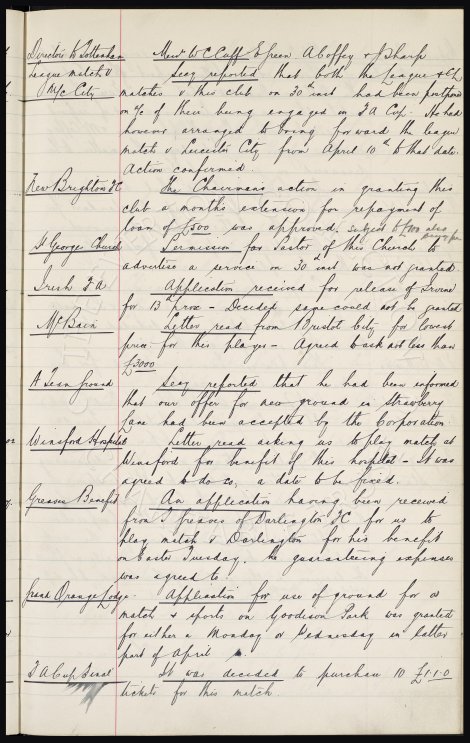 Directors to Tottenham Messrs W C Cuff E Green A Coffey & J Sharp
League match v Secy reported that both the League & C L
Mc City matches v this club on 30th inst had been postponed
on a/c of their being engaged in F A Cup. He had
however arranged to bring forward the league
match v Leicester City from April 10th to that date.
Action confirmed.
New Brighton FC The Chairmans action in granting this
club a months extension for repayment of
loan of £500 was approved. subject to
St Georges Church Permission for Pastor of this Church to
advertise a service on 30th inst was not granted
Irish F A Application received for release of Irvine
for 13th prox - Decided same could not be granted
McBain Letter read from Bristol City for lowest
price for this player - Agreed to ask not less than
£3000
A Team Ground Secy reported that he had been informed
that our offer for new ground in Strawberry
Lane had been accepted by the Corporation.
Winsford Hospital Letter read asking us to play match at
Winsford for benefit of this hospital - It was
agreed to do so, a date to be fixed.
Greaves Benefit An application having been received
from T Greaves of Darlington FC for us to
play match v Darlington for his benefit
on Easter Tuesday. he guaranteeing expenses
was agreed to.
Grand Orange Lodge. Application for use of ground for a
match & sports on Goodison Park was granted
for either a Monday or Wednesday in latter
part of April
F A Cup Final It was decided to purchase 10 £1-1-0
tickets for this match.